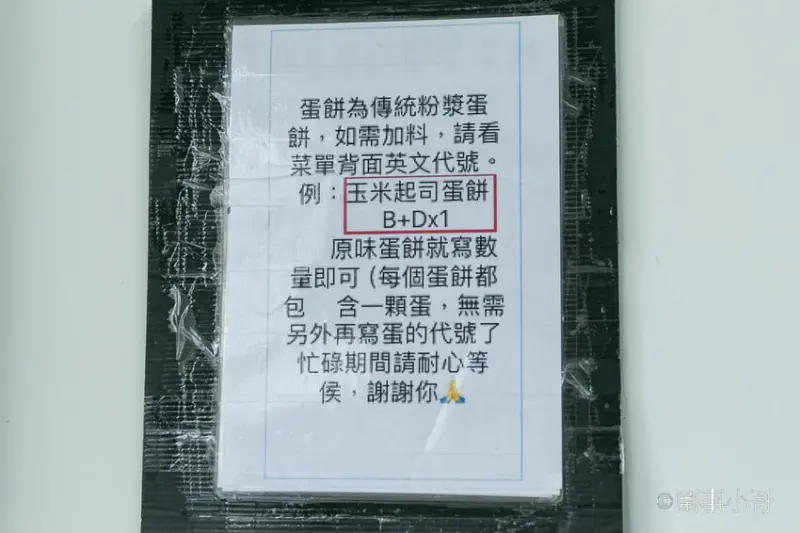 蛋餅為傳統粉漿蛋
餅，如需加料，請看
菜單背面英文代號。
例：玉米起司蛋餅
B+Dx1
原味蛋餅就寫數
量即可 (每個蛋餅都
包 含一顆蛋，無需
另外再寫蛋的代號了
忙碌期間請耐心等
侯，謝謝你🙏
©闈事小哥